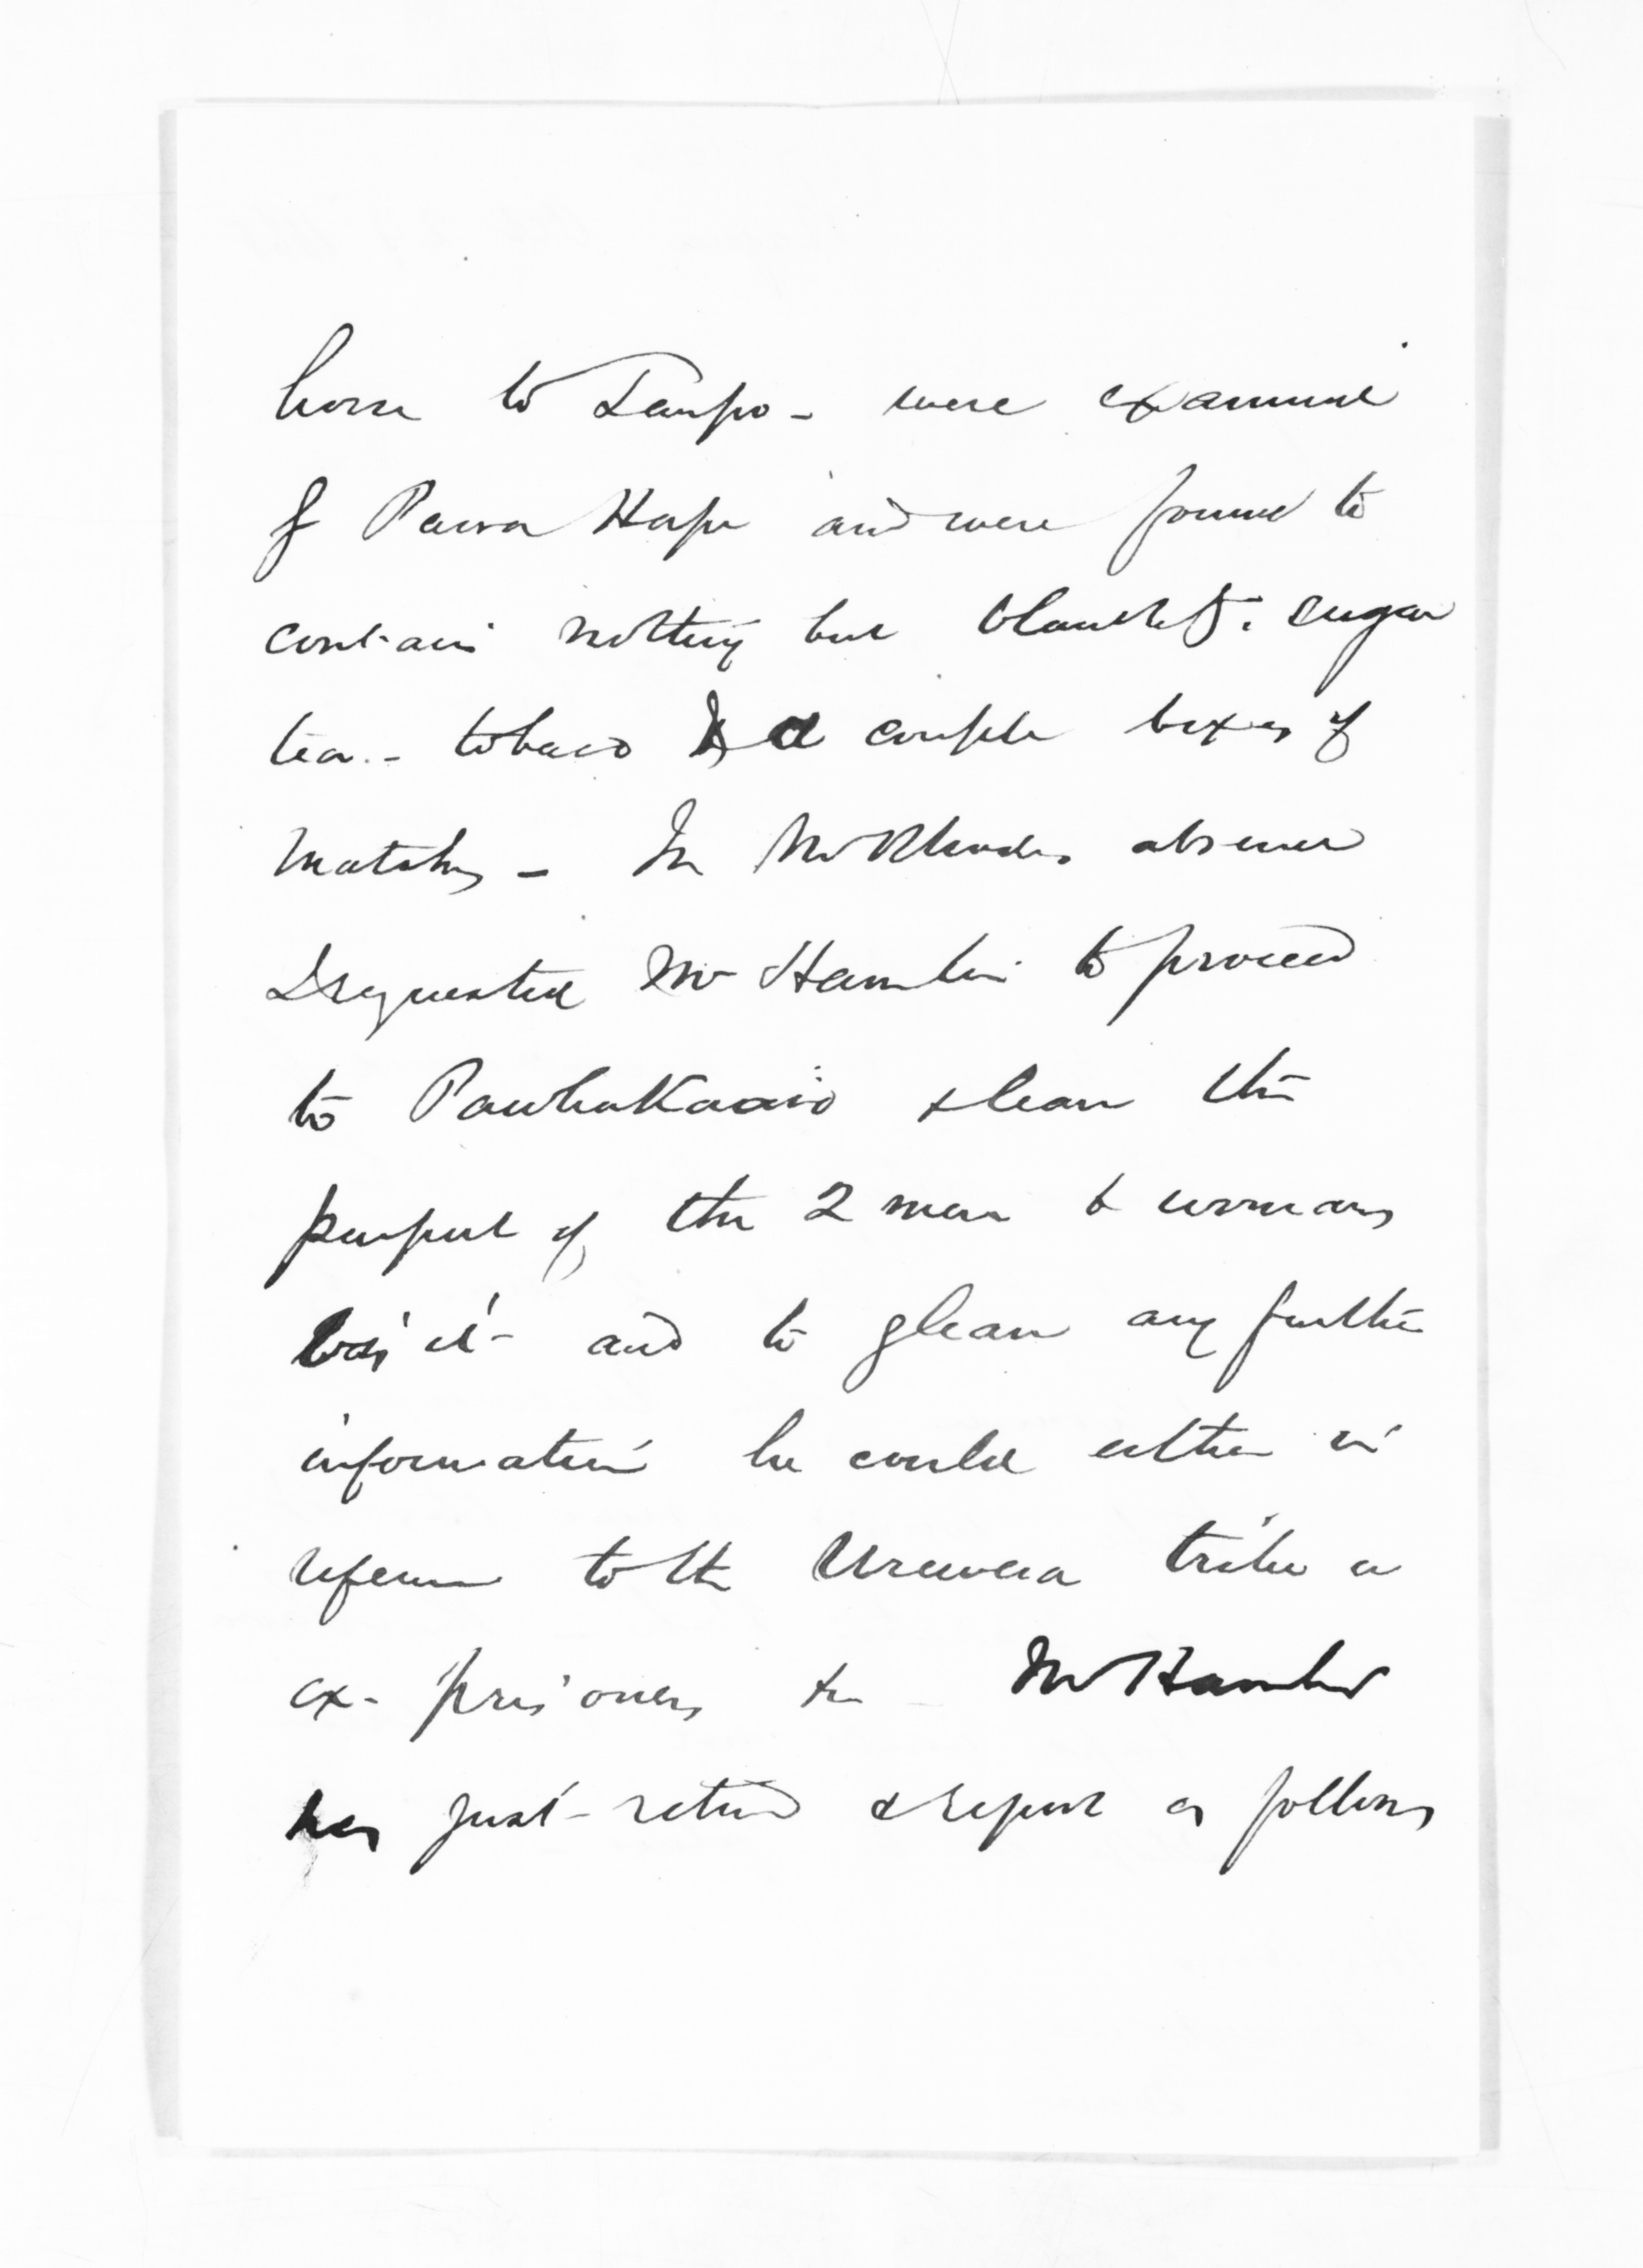 horse to Taupo - were examined
by Paora Hape and were found to
contain nothing but blankets. sugar
tea - tobacco & a couple boxes of
matches - In Mr Rhodes absence
I requested Mr Hamlin to proceed
to Pawhakaairo & learn the
purport of the 2 men & womans
visit - and to glean any further
information he could either in
reference to the Urewera tribe or
ex-prisoners &c - Mr Hamlin
has just returnd & report as follows